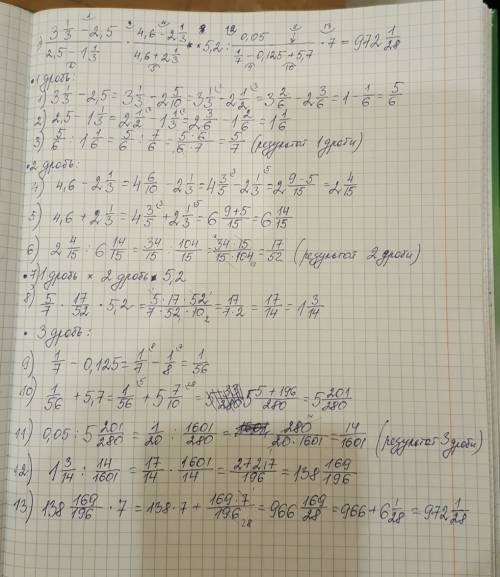 (3 1/3 - 2,5)/(2,5 - 1 1/3) · (4,6 - 2 1/3)/(4,6 + 2 1/3) · 5,2 : 0,05/(1/7 - 0,125 + 5,7) · 7 = 972 1/28
• 1 дробь:
1) 3 1/3 - 2,5 = 3 1/3 - 2 5/10 = 3 1/3 - 2 1/2 = 3 2/6 - 2 3/6 = 1 - 1/6 = 5/6
2) 2,5 - 1 1/3 = 2 1/2 - 1 1/3 = 2 3/6 - 1 2/6 = 1 1/6
3) 5/6 : 1 1/6 = 5/6 : 7/6 = 5·6/6·7 = 5/7 (результат 1 дроби)
• 2 дробь:
4) 4,6 - 2 1/3 = 4 6/10 - 2 1/3 = 4 3/5 - 2 1/3 = 2 9-5/15 = 2 4/15
5) 4,6 + 2 1/3 = 4 3/5 + 2 1/3 = 6 9+5/15 = 6 14/15
6) 2 4/15 : 6 14/15 = 34/15 : 104/15 = 34·15/15·104 = 17/52 (результат 2 дроби)
• 7) 1 дробь × 2 дробь · 5,2
8) 5/7 · 17/52 · 5,2 = 5·17·52/7·52·10 = 17/7·2 = 17/14 = 1 3/14
• 3 дробь:
9) 1/7 - 0,125 = 1/7 - 1/8 = 1/56
10) 1/56 + 5,7 = 1/56 + 5 7/10 = 5 5+196/280 = 5 201/280
11) 0,05 : 5 201/280 = 1/20 : 1601/280 = 280/20·1601 = 14/1601 (результат 3 дроби)
12) 1 3/14 : 14/1601 = 17/14 · 1601/14 = 27217/196 = 138 169/196
13) 138 169/196 · 7 = 138·7 + 169·7/196 = 966 169/28 = 966 + 6 1/28 = 972 1/28